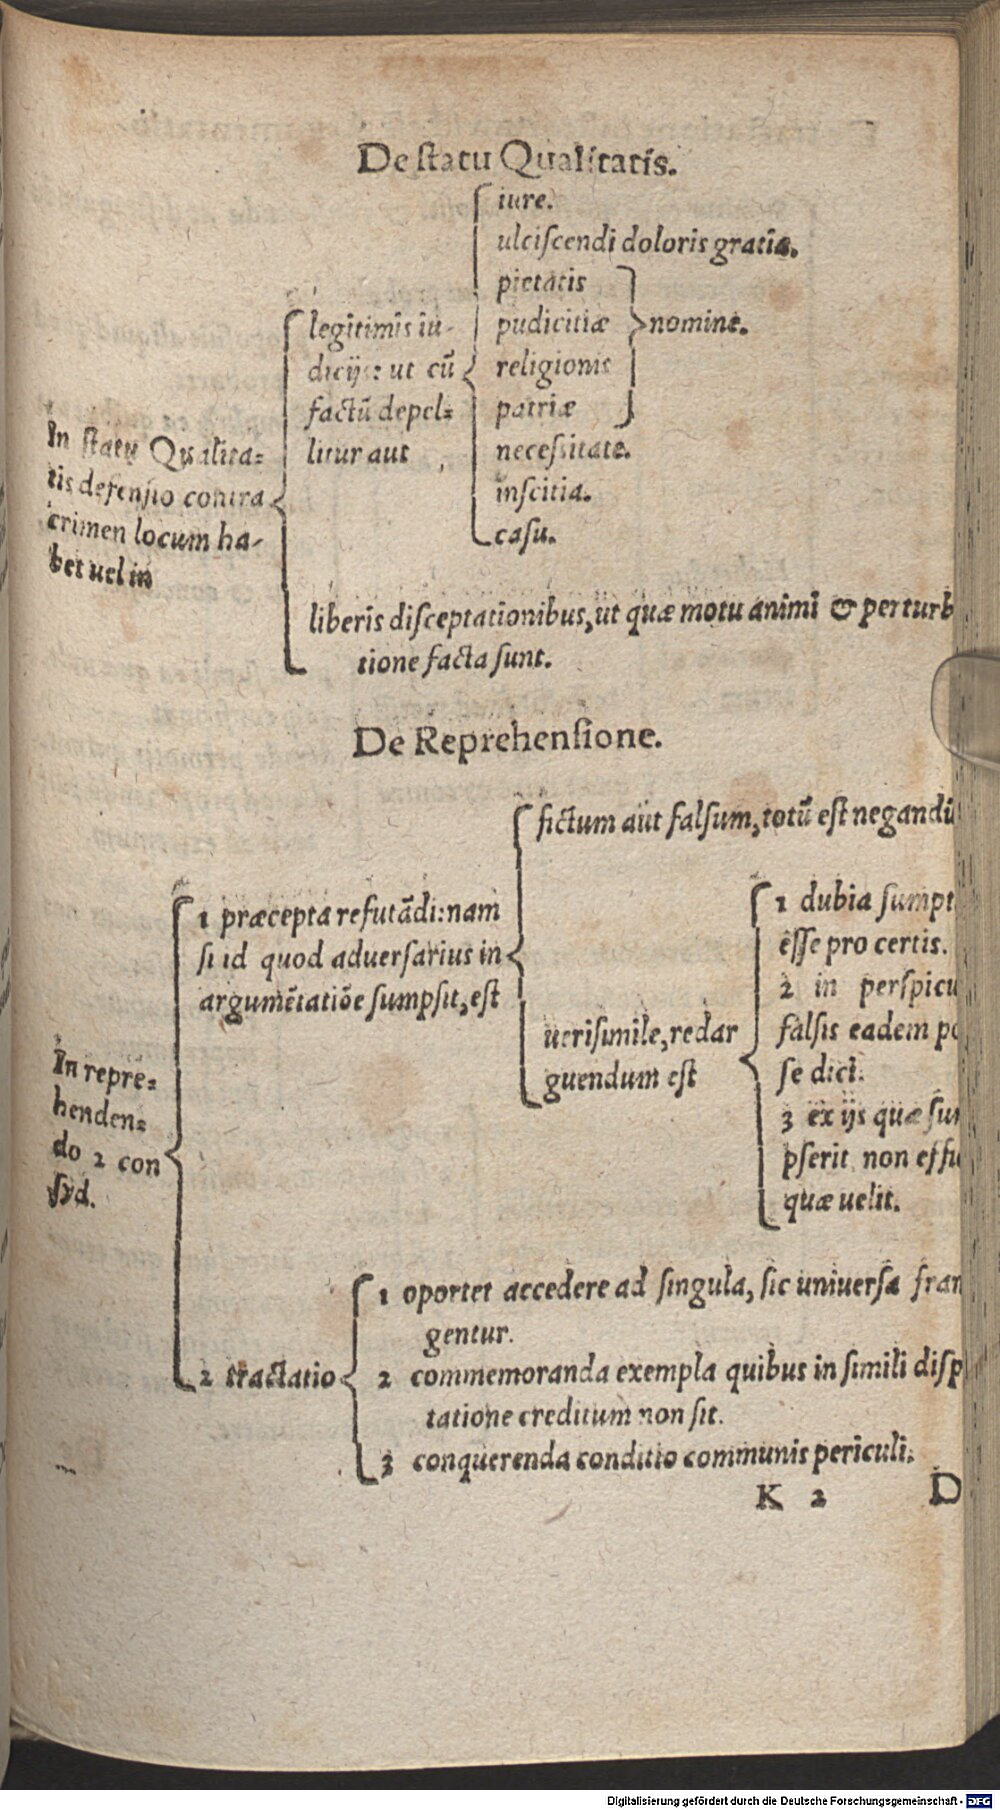 De ſtatu Qualitatis.
In ſtatu Qualita=
tis defenſio contra
crimen locum ha-
bet uel in
legitimis iu-
dicijs: ut cū
factū depel=
litur aut
iure.
ulciſcendi doloris gratia.
pietatis
pudicitiæ
religionis
patriæ
nomine.
neceſsitate.
inſcitia.
caſu.
liberis diſceptationibus, ut quæ motu animi & perturb
tione facta ſunt.
De Reprehenſione.
In repre=
henden=
do 2 con
ſyd.
1 præcepta refutādi: nam
ſi id quod aduerſarius in
argumētatiōe ſumpſit, eſt
fictum aut falſum, totū eſt negandū
ueriſimile, redar
guendum eſt
1 dubia ſumpt
eſſe pro certis.
2 in perſpicu
falſis eadem po
ſe dici.
3 ex ijs quæ ſum
pſerit non effi
quæ uelit.
2 tractatio
1 oportet accedere ad ſingula, ſic uniuerſa fran
gentur.
2 commemoranda exempla quibus in ſimili diſp
tatione creditum non ſit.
3 conquerenda conditio communis periculi.
K 2 D
Digitalisierung gefördert durch die Deutsche Forschungsgemeinschaft - DFG